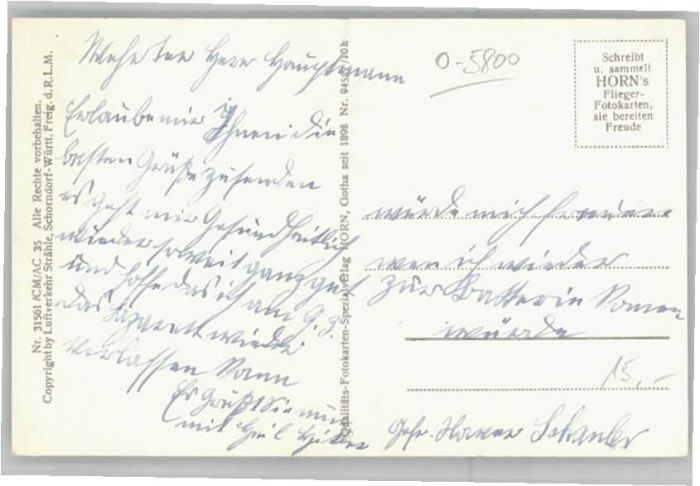 Werter Herr Hauptmann
Erlaube mir Ihnen die
besten Grüße zusenden
es geht mir Gesundheitlich
wieder soweit ganz gut
und hoffe das ich am 9.3.
das Lazarett wieder
verlassen kann
Es Grüßt Sie nun
mit Heil Hitler
würde mich freuen
wen ich wieder
zur Batterie komen
würde
Gefr. Xaver
O-5800
15,-
Schreibt
u. sammelt
HORN's
Flieger-
Fotokarten,
sie bereiten
Freude
Nr. 31561 /CM/AC 35 Alle Rechte vorbehalten.
Copyright by Luftverkehr Strähle, Schorndorf-Württ. Freig. d. R.L.M.
Qualitäts-Fotokarten-Spezialverlag HORN, Gotha seit 1898 Nr.